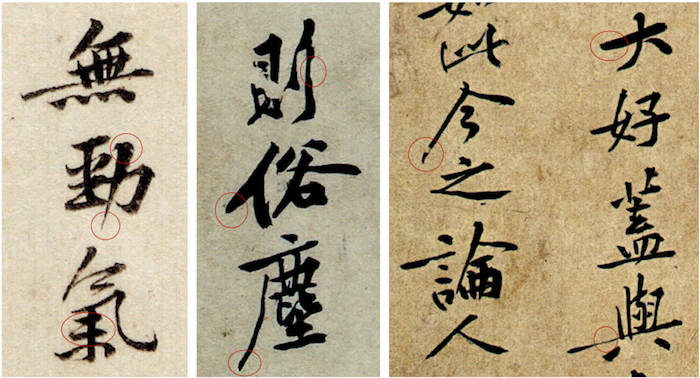 無勁氣
則俗塵
大好蓋與
如此今之論人